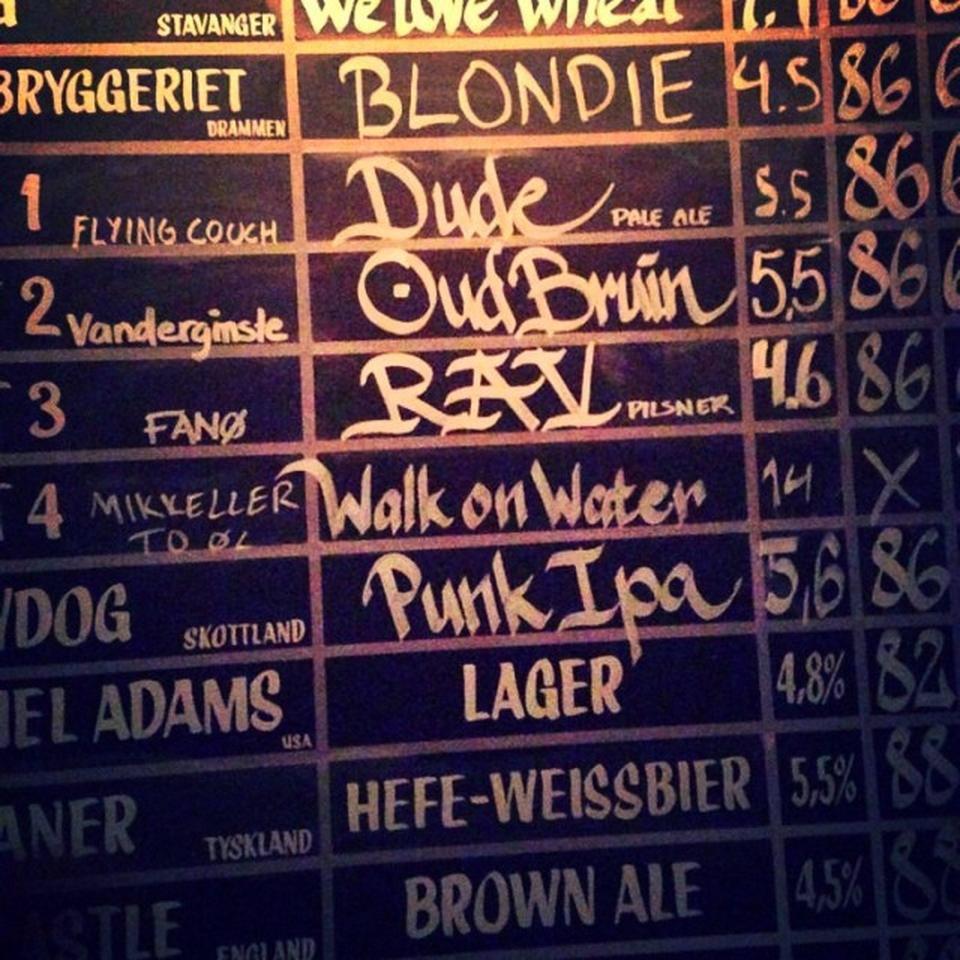 STAVANGER We love Wheat
BRYGGERIET DRAMMEN BLONDIE 4.5 86
1 FLYING COUCH Dude PALE ALE 5.5 86
2 Vanderginste Oud Bruin 5,5 86
3 FANØ RAV PILSNER 4.6 86
4 MIKKELLER Walk on Water 14 X
TO ØL
DOG SKOTTLAND Punk Ipa 5,6 86
EL ADAMS USA LAGER 4,8% 82
ANER TYSKLAND HEFE-WEISSBIER 5,5% 88
ASTLE ENGLAND BROWN ALE 4,5% 88